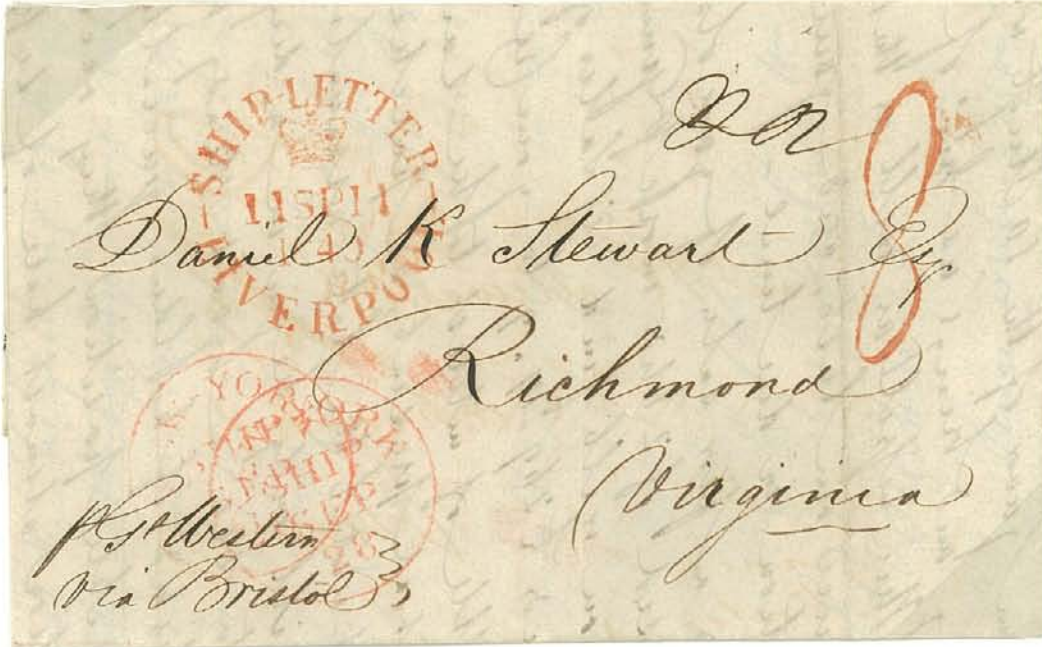 SHIP-LETTER
LIVERPOOL
8
Daniel K Stewart Esq
Richmond
Virginia
YORK
SHIP
p Gt Western
via Bristol